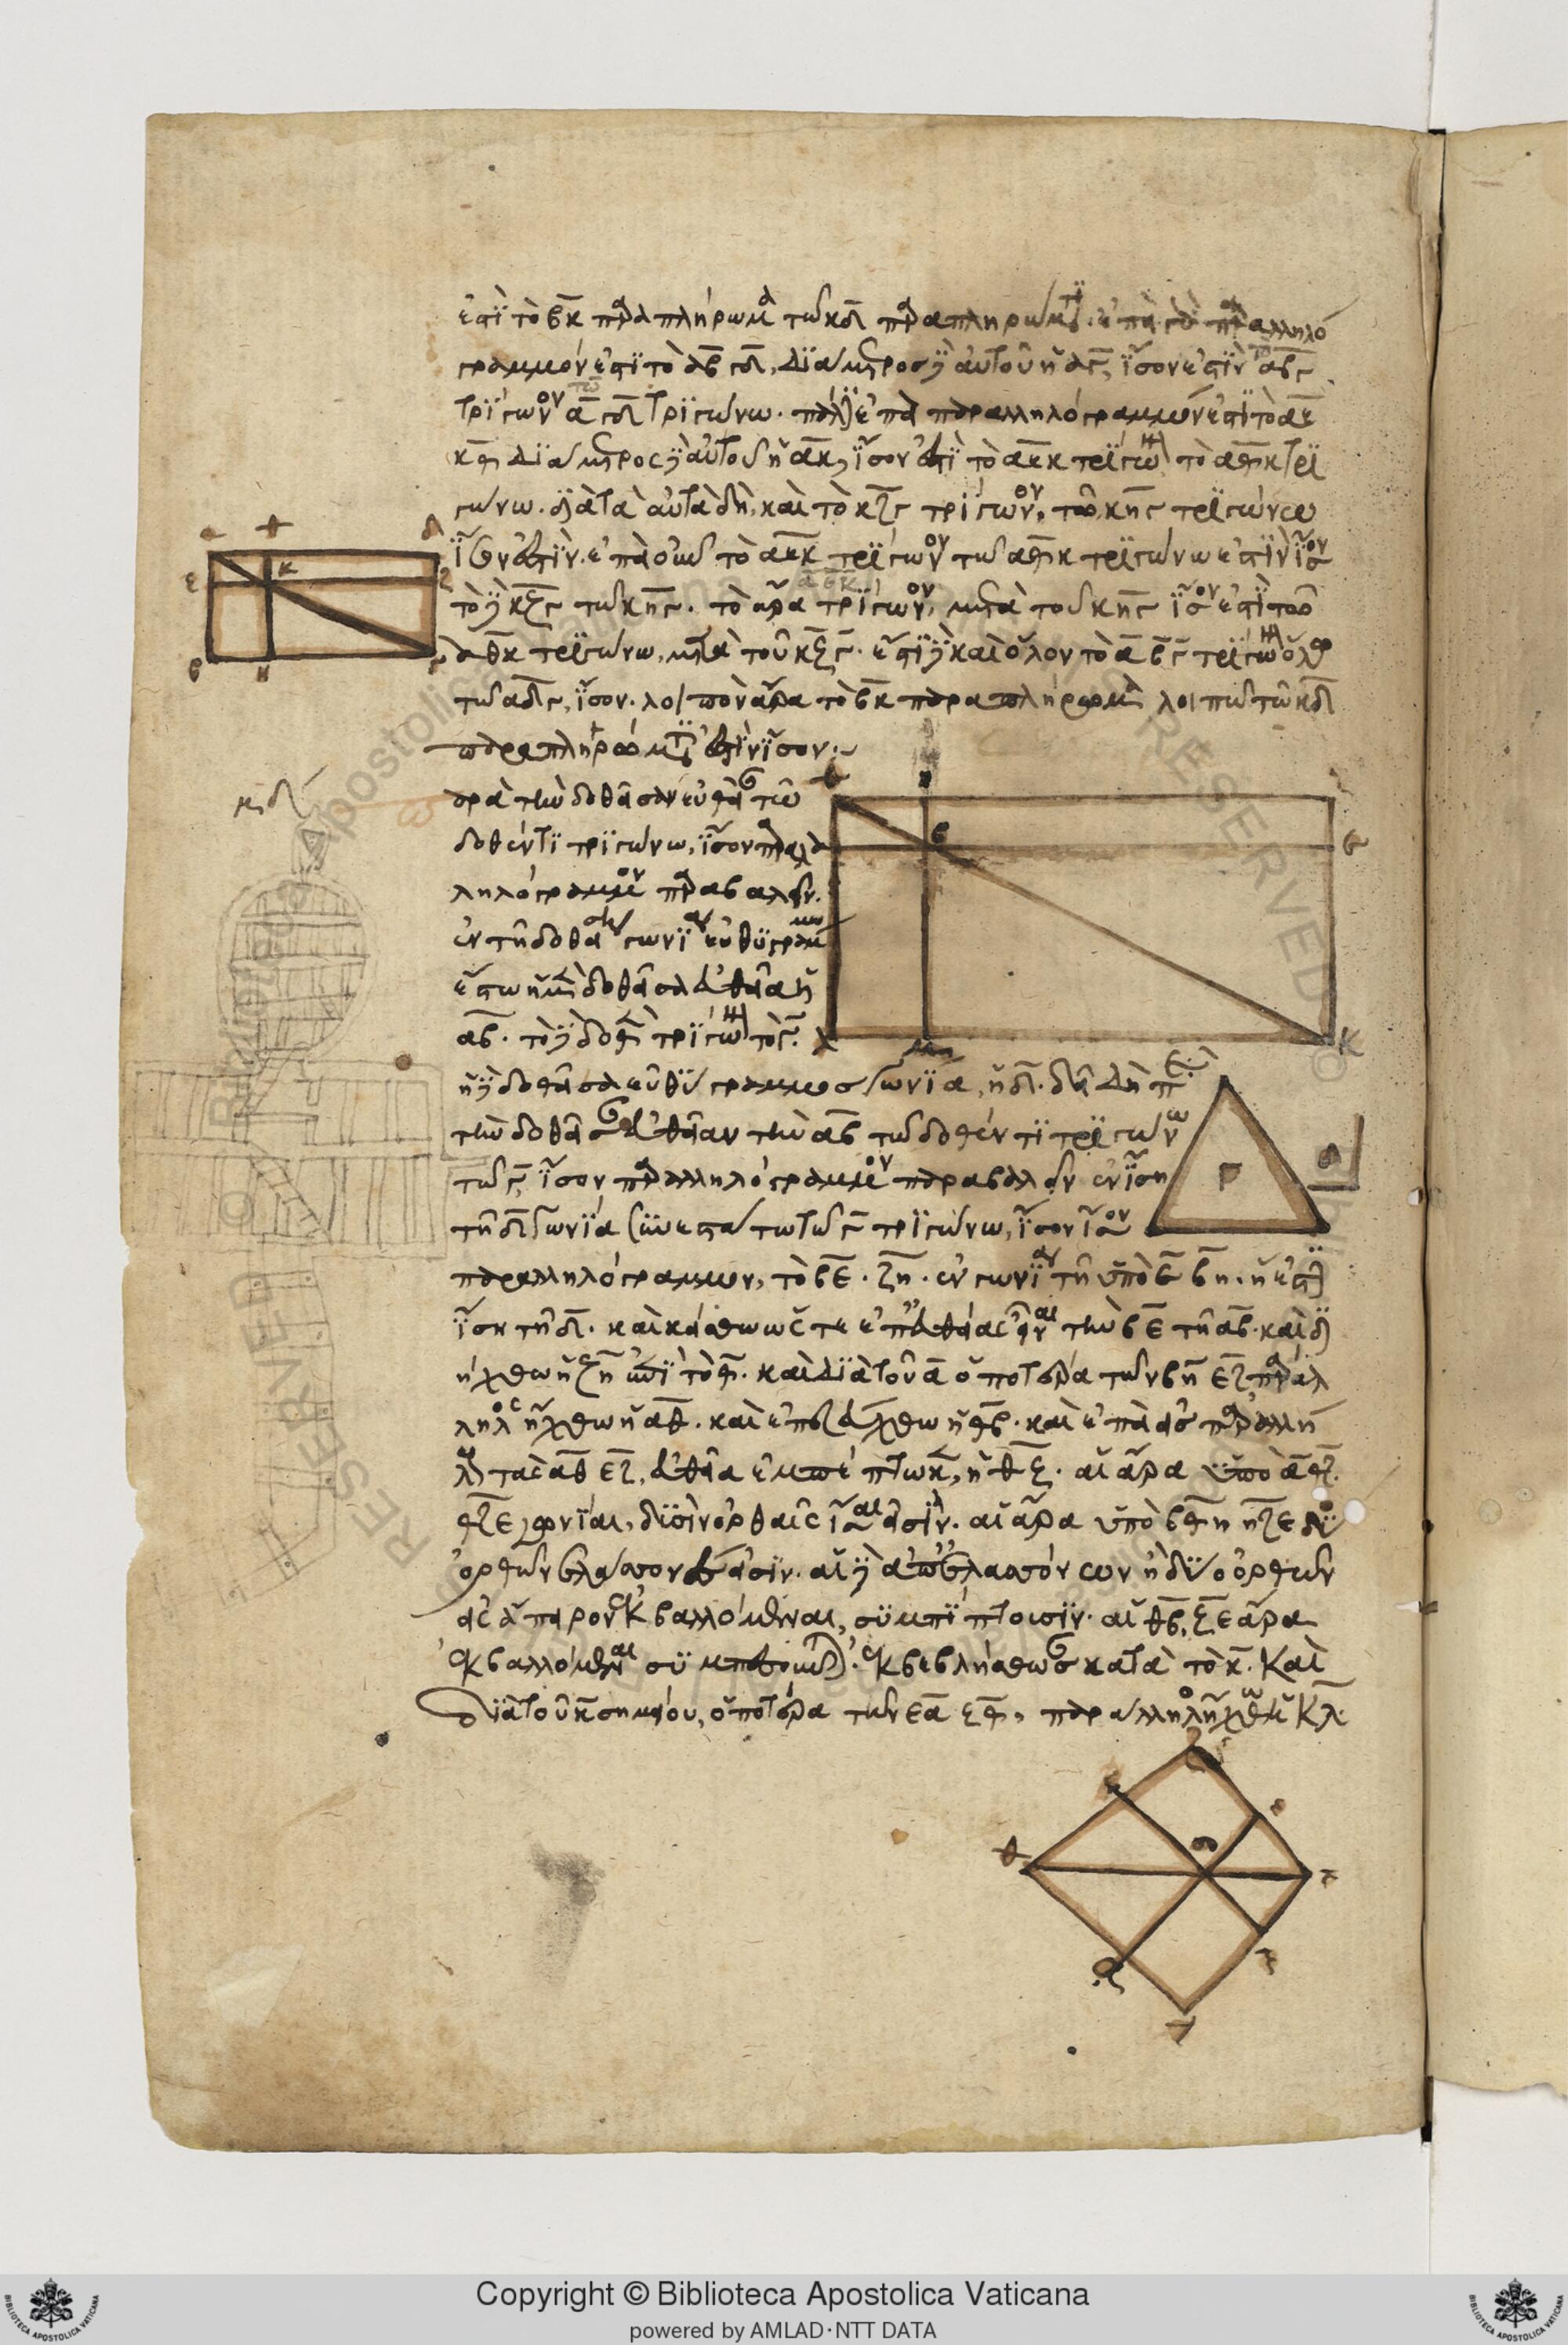 ἐστὶ τὸ βκ παραπλήρωμα τῶ κδ παραπληρώματι. ἐπεὶ παραλληλό
γραμμόν ἐστι τὸ αβγδ, διάμετρος αὐτοῦ ἡ αγ, ἴσον ἐστὶν αβγ
τρίγωνον αγδ τριγώνω. πάλιν ἐπεὶ παραλληλόγραμμόν ἐστι τὸ αε
κθ διάμετρος αὐτοῦ ἡ ακ, ἴσον ἐστὶ τὸ αεκ τρίγωνον τὸ αθκ τρι
γώνω. διὰ τὰ αὐτὰ δὴ καὶ τὸ κζγ τρίγωνον, τῶ κηγ τριγώνω
ἴσον ἐστίν. ἐπεὶ οὖν τὸ αεκ τρίγωνον τῶ αθκ τριγώνω ἐστὶν ἴσον
τὸ κζγ τῶ κηγ. τὸ ἄρα τρίγωνον, μετὰ τοῦ κηγ ἴσον ἐστὶ τῶ
αθκ τριγώνω, μετὰ τοῦ κζγ. ἔστι καὶ ὅλον τὸ αβγ τρίγωνον ὅλω
τῶ αδγ, ἴσον. λοιπὸν ἄρα τὸ βκ παραπλήρωμα λοιπῶ τῶ κδ
παραπληρώματι ἐστὶν ἴσον
μδ
παρὰ τὴν δοθεῖσαν εὐθεῖαν τῶ
δοθέντι τριγώνω, ἴσον παραλ
ληλόγραμμον παραβαλεῖν
ἐν τῆ δοθείση γωνία εὐθυγράμμω
ἔστω ἡ μὲν δοθεῖσα εὐθεῖα ἡ
αβ. τὸ δοθὲν τρίγωνον τὸ γ
ἡ δοθεῖσα εὐθύγραμμος γωνία, ἡ δ. δεῖ δὴ παρὰ
τὴν δοθεῖσαν εὐθεῖαν τὴν αβ τῶ δοθέντι τριγώνω
τῶ γ ἴσον παραλληλόγραμμον παραβαλεῖν ἐν ἴση
τῆ δ γωνία συνεστάτω τῶ γ τριγώνω, ἴσον
παραλληλόγραμμον, τὸ βε ζη ἐν γωνία τῆ ὑπὸ ε βη. ἥ ἐστιν
ἴση τῆ δ. καὶ κείσθω ὥστε ἐπ' εὐθείας εἶναι τὴν βε τῆ αβ. καὶ δι
ήχθω ἡ ζη ἐπὶ τὸ θ. καὶ διὰ τοῦ α ὁποτέρα τῶν βη εζ παράλ
ληλος ἤχθω ἡ αθ. καὶ ἐπεζεύχθω ἡ θβ. καὶ ἐπεὶ εἰς παραλλή
λους τὰς αθ εζ, εὐθεῖα ἐμπέπτωκεν, ἡ θζ. αἱ ἄρα ὑπὸ αθζ
θζε γωνίαι, δυσὶν ὀρθαῖς ἴσαι εἰσίν. αἱ ἄρα ὑπὸ βθη ηζε δύο
ὀρθῶν ἐλάσσονές εἰσιν. αἱ ἀπ' ἐλασσόνων ἢ δύο ὀρθῶν
εἰς ἄπειρον ἐκβαλλόμεναι, συμπίπτουσιν. αἱ θβ, ζε ἄρα
ἐκβαλλόμεναι συμπεσοῦνται. ἐκβεβλήσθωσαν κατὰ τὸ κ. καὶ
διὰ τοῦ κ σημείου, ὁποτέρα τῶν εα ζθ, παράλληλος ἤχθω ἡ κλ
Copyright © Biblioteca Apostolica Vaticana
powered by AMLAD·NTT DATA